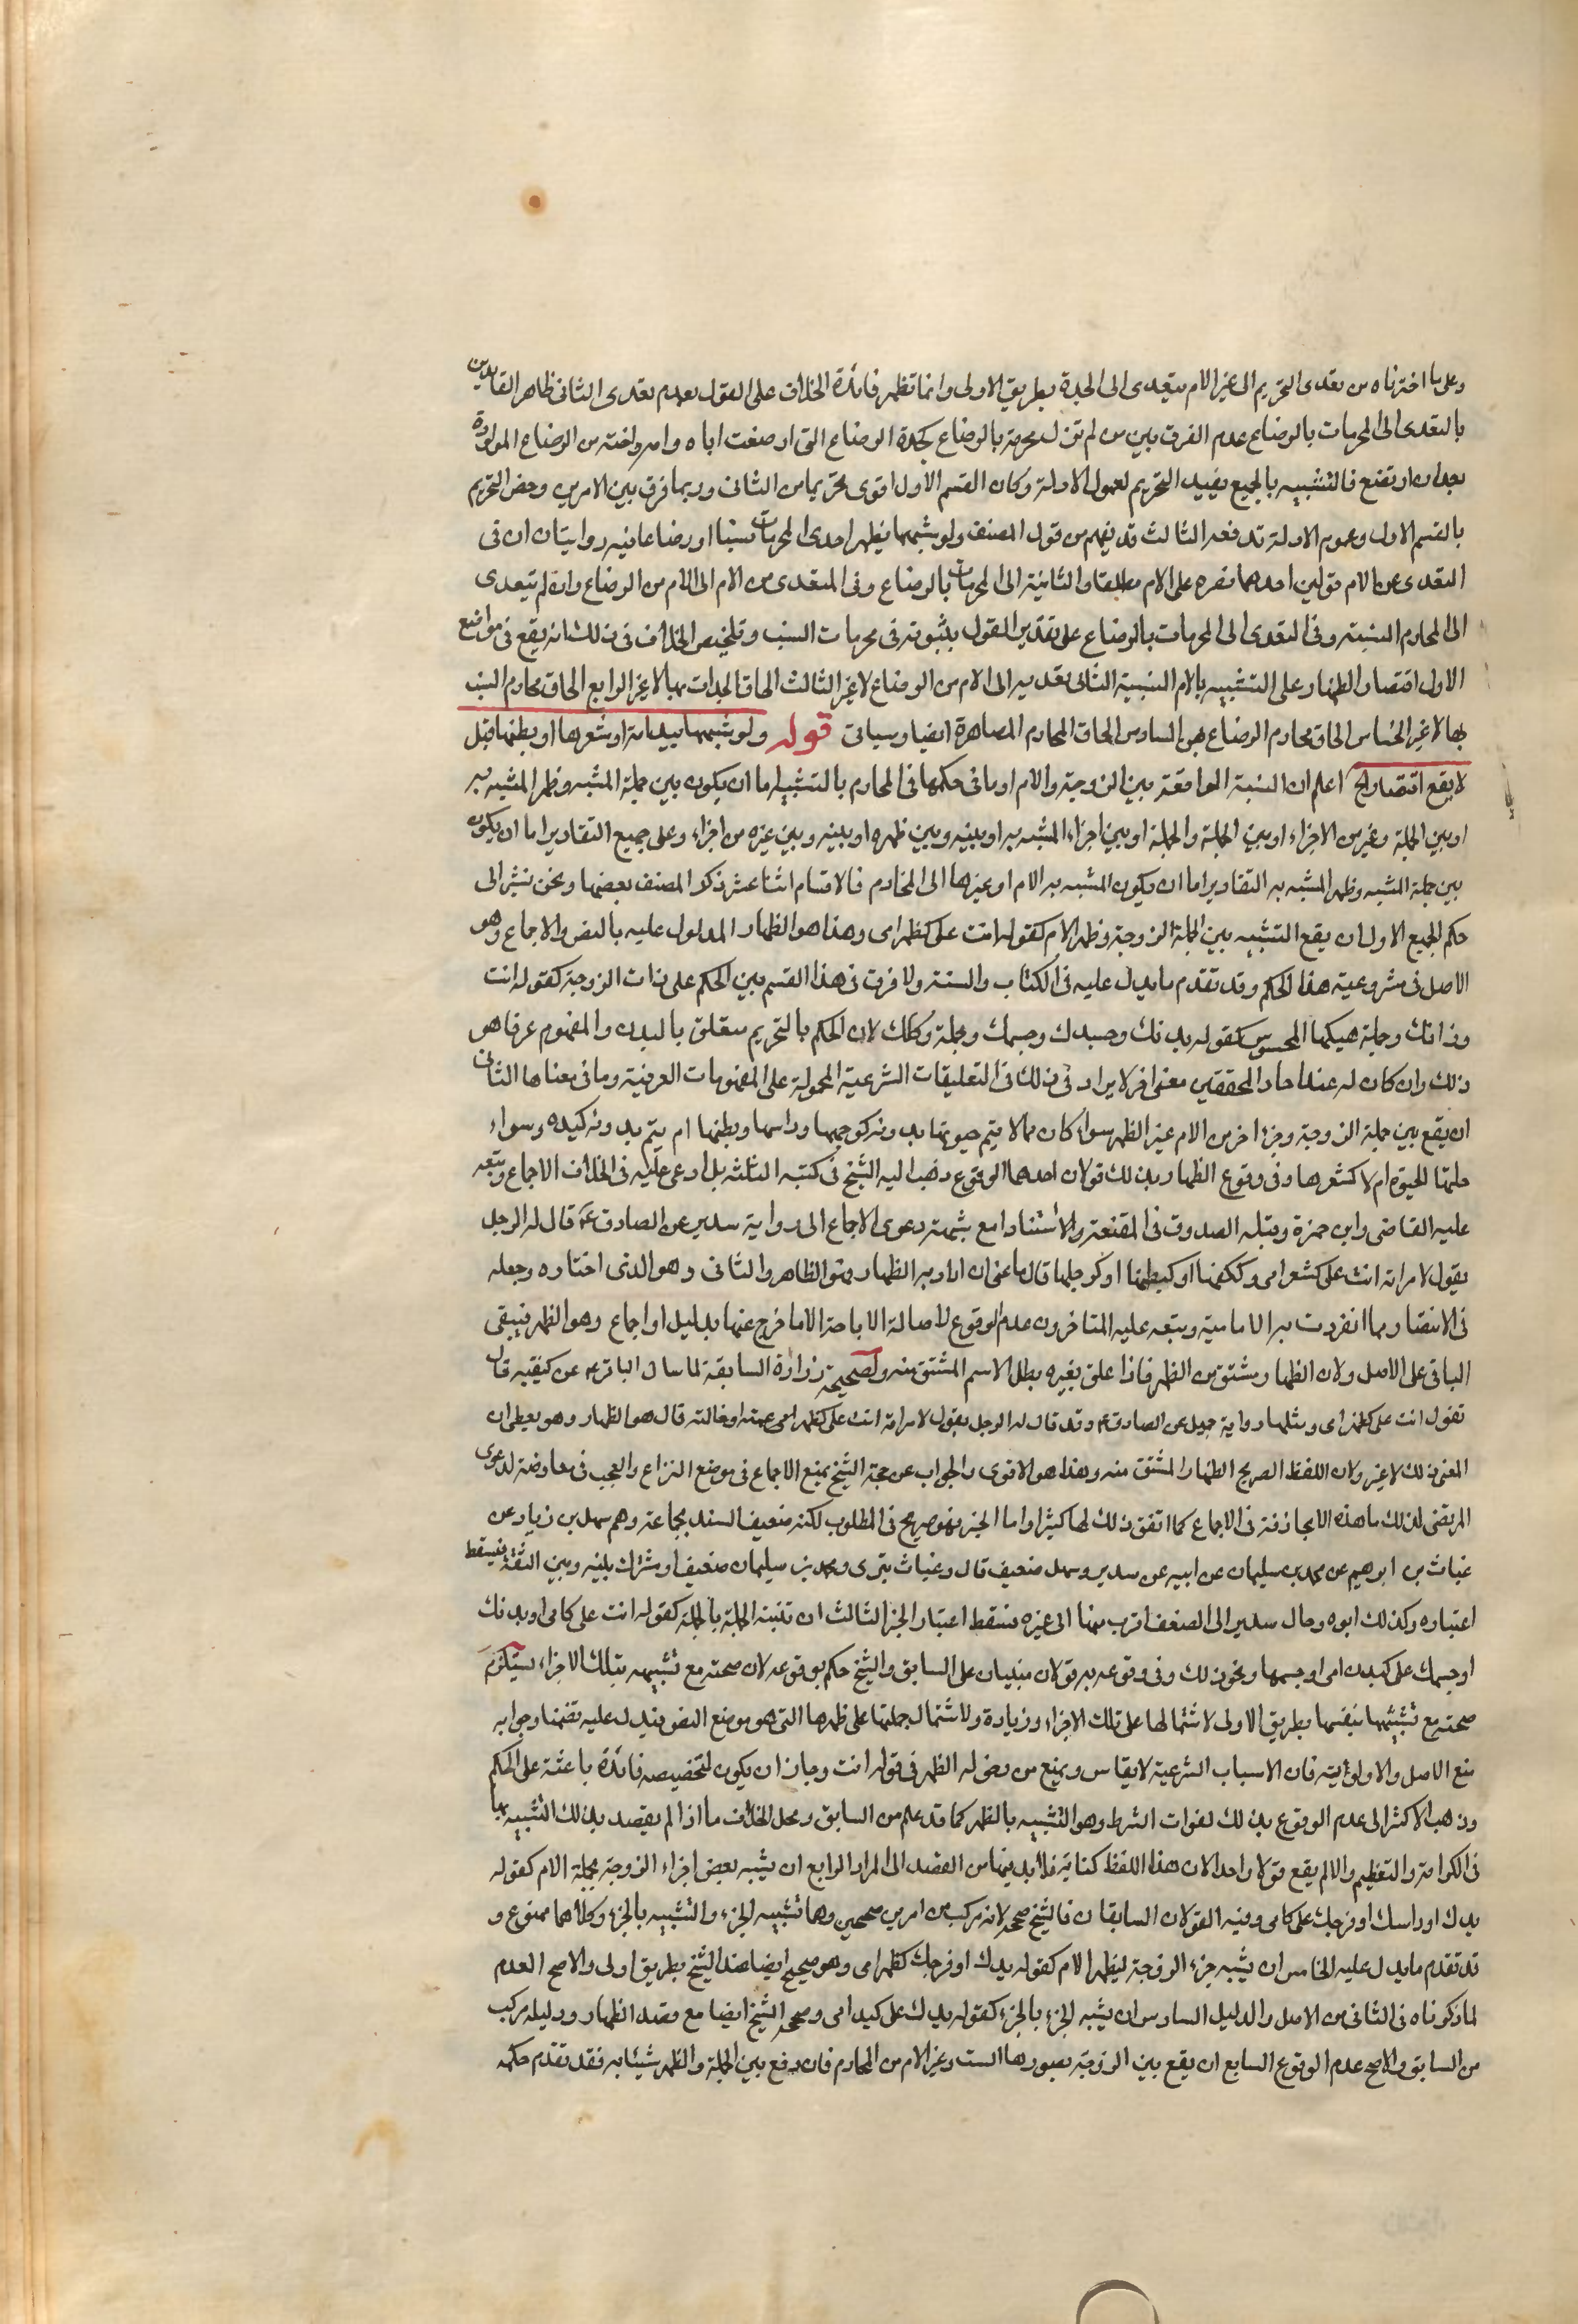 وعلى ما اخترناه من تعدى التحريم الى غير الام يتعدى الى الجدة بطريق الاولى وانما تظهر فائدة الخلاف على القول بعدم تعدى الثانى ظاهر القايلين
بالتعدى الى المحرمات بالرضاع عدم الفرق بين من لم تزل محرمة بالرضاع كجدة الرضاع التى ارضعت اباه وامه واخته من الرضاع المولودة
بعد ان ارتضع فالتشبيه بالجميع يفيد التحريم لعموم الادلة وكان القسم الاول اقوى تحريما من الثانى وربما فرق بين الامرين وخص التحريم
بالقسم الاول وعموم الادلة تدفعه الثالث قد يفهم من قول المصنف ولو شبهها بظهر احدى المحرمات نسبا او رضاعا فيه روايتان ان فى
التعدى عن الام قولين احدهما قصره على الام مطلقا والثانية الى المحرمات بالرضاع وفى المتعدى من الام الى الام من الرضاع وان لم يتعدى
الى المحارم النسبية وفى التعدى الى المحرمات بالرضاع على تقدير القول بثبوته فى محرمات النسب وتلخيص الخلاف فى ذلك انه يقع فى مواضع
الاول اقتصار الظهار على التشبيه بالام النسبية الثانى تعديه الى الام من الرضاع لا غير الثالث الحاق الجدات بها لا غير الرابع الحاق محارم النسب
بها لا غير الخامس الحاق محارم الرضاع بهن السادس الحاق المحارم المصاهرة ايضا وسياتى قوله ولو شبهها بيد امه او شعرها او بطنها قيل
لا يقع اقتصارا الخ اعلم ان النسبة الواقعة بين الزوجة والام او ما فى حكمها فى المحارم بالتشبيه اما ان يكون بين جملة المشبه وظهر المشبه به
او بين الجملة وغيره من الاجزاء او بين الجملة والجملة او بين اجزاء المشبه به او بينه وبين ظهره او بينه وبين غيره من اجزاء وعلى جميع التقادير اما ان يكون
بين جملة المشبه وظهر المشبه به التقادير اما ان يكون المشبه به الام او غيرها الى المحارم فالاقسام اثنا عشر ذكر المصنف بعضها ونحن نشير الى
حكم الجميع الاول ان يقع التشبيه بين الجملة الزوجة وظهر الام كقوله انت على كظهر امى وهذا هو الظهار المدلول عليه بالنص والاجماع وهو
الاصل فى مشروعية هذا الحكم وقد تقدم ما يدل عليه فى الكتاب والسنة ولا فرق فى هذا القسم بين الحكم على ذات الزوجة كقوله انت
وذاتك وجملة هيكلها المحسوس كقوله بدنك وجسدك وجسمك وجملة وكلك لان الحكم بالتحريم متعلق بالبدن والمفهوم عرفا هو
ذلك وان كان له عند احاد المحققين معنى اخر لا يراد فى ذلك فى التعليقات الشرعية المحمولة على المفهومات العرفية وما فى معناها الثانى
ان يقع بين جملة الزوجة وجزء اخر من الام غير الظهر سواء كان مما لا يتم حيوتها بدونه كوجهها وراسها وبطنها ام يتم بدونه كيده وسواء
حلتها الحيوة ام لا كشعرها وفى وقوع الظهار بذلك قولان احدهما الوقوع ذهب اليه الشيخ فى كتبه الثلثة بل ادعى عليه فى الخلاف الاجماع وتبعه
عليه القاضى وابن حمزة وقبله الصدوق فى المقنعة والاستناد مع شبهته دعوى الاجماع الى رواية سدير عن الصادق ع قال له الرجل
يقول لامراته انت على كشعر امى وككفها او كبطنها او كرجلها قال ما عنى ان اراد به الظهار فهو الظاهر والثانى وهو الذى اختاره وجعله
فى الانتصار مما انفردت به الامامية وتبعه عليه المتاخرون عدم الوقوع لاصالة الاباحة الا ما خرج عنها بدليل او اجماع وهو الظهر فيبقى
الباقى على الاصل ولان الظهار مشتق من الظهر فاذا علق بغيره بطل الاسم المشتق منه ولصحيحة زرارة السابقة لما سال الباقر ع عن كيفيته قال
تقول انت على كظهر امى ومثلها رواية جميل عن الصادق ع وقد قال له الرجل يقول لامراته انت على كظهر امى عمته او خالته قال هو الظهار وهو يعطى ان
المعنى ذلك لا غير ولان اللفظ الصريح الظهار المشتق منه وهذا هو الاقوى والجواب عن حجة الشيخ بمنع الاجماع فى موضع النزاع والعجب فى معارضته لدعوى
المرتضى لذلك ما هذه الا بمجازفة فى الاجماع كما اتفق ذلك لهما كثيرا واما الخبر فهو صريح فى المطلوب لكنه ضعيف السند بجماعة وهم سهل بن زياد عن
غياث بن ابرهيم عن محمد بن سليمان عن ابيه عن سدير وسهل ضعيف قال وغياث بترى ومحمد بن سليمان ضعيف او مشترك بينه وبين الثقة فيسقط
اعتباره وكذلك ابوه وحال سدير الى الضعف اقرب منها الى غيره فسقط اعتبار الخبر الثالث ان تشبه الجملة بالجملة كقوله انت على كامى او بدنك
او جسمك على كبدن امى او جسمها ونحو ذلك وفى وقوعه به قولان مبنيان على السابق والشيخ حكم بوقوعه لان صحته مع تشبيهه بتلك الاجزاء يستلزم
صحته مع تشبيهها بنفسها بطريق الاولى لاشتمالها على تلك الاجزاء وزيادة ولاشتمال جملتها على ظهرها التى هو موضع النص فيدل عليه تضمنا وجوابه
منع الاصل والاولوية فان الاسباب الشرعية لا يقاس ويمنع من دخوله الظهر فى قوله انت وجاز ان يكون لتخصيصه فائدة باعثة على الحكم
وذهب الاكثر الى عدم الوقوع بذلك لفوات الشرط وهو التشبيه بالظهر كما قد علم من السابق ومحل الخلاف ما اذا لم يقصد بذلك التشبيه بها
فى الكرامة والتعظيم والا لم يقع قولا واحدا لان هذا اللفظ كناية فلا بد فيها من القصد الى المراد الرابع ان يشبه بعض اجزاء الزوجة بجملة الام كقوله
يدك او راسك او فرجك على كامى وفيه القولان السابقان فالشيخ صححه لانه مركب من امرين صحيحين وهما تشبيه الجزء والتشبيه بالجزء وكلاهما ممنوع و
قد تقدم ما يدل عليه الخامس ان يشبه جزء الزوجة بظهر الام كقوله يدك او فرجك كظهر امى وهو صحيح ايضا عند الشيخ بطريق اولى والاصح العدم
لما ذكرناه فى الثانى من الاصل والدليل السادس ان يشبه الجزء بالجزء كقوله يدك على كيد امى وصححه الشيخ ايضا مع قصد الظهار ودليله مركب
من السابق والاصح عدم الوقوع السابع ان يقع بين الزوجة بصورها الست وغير الام من المحارم فان وقع بين الجملة والظهر شيئا به فقد تقدم حكمه